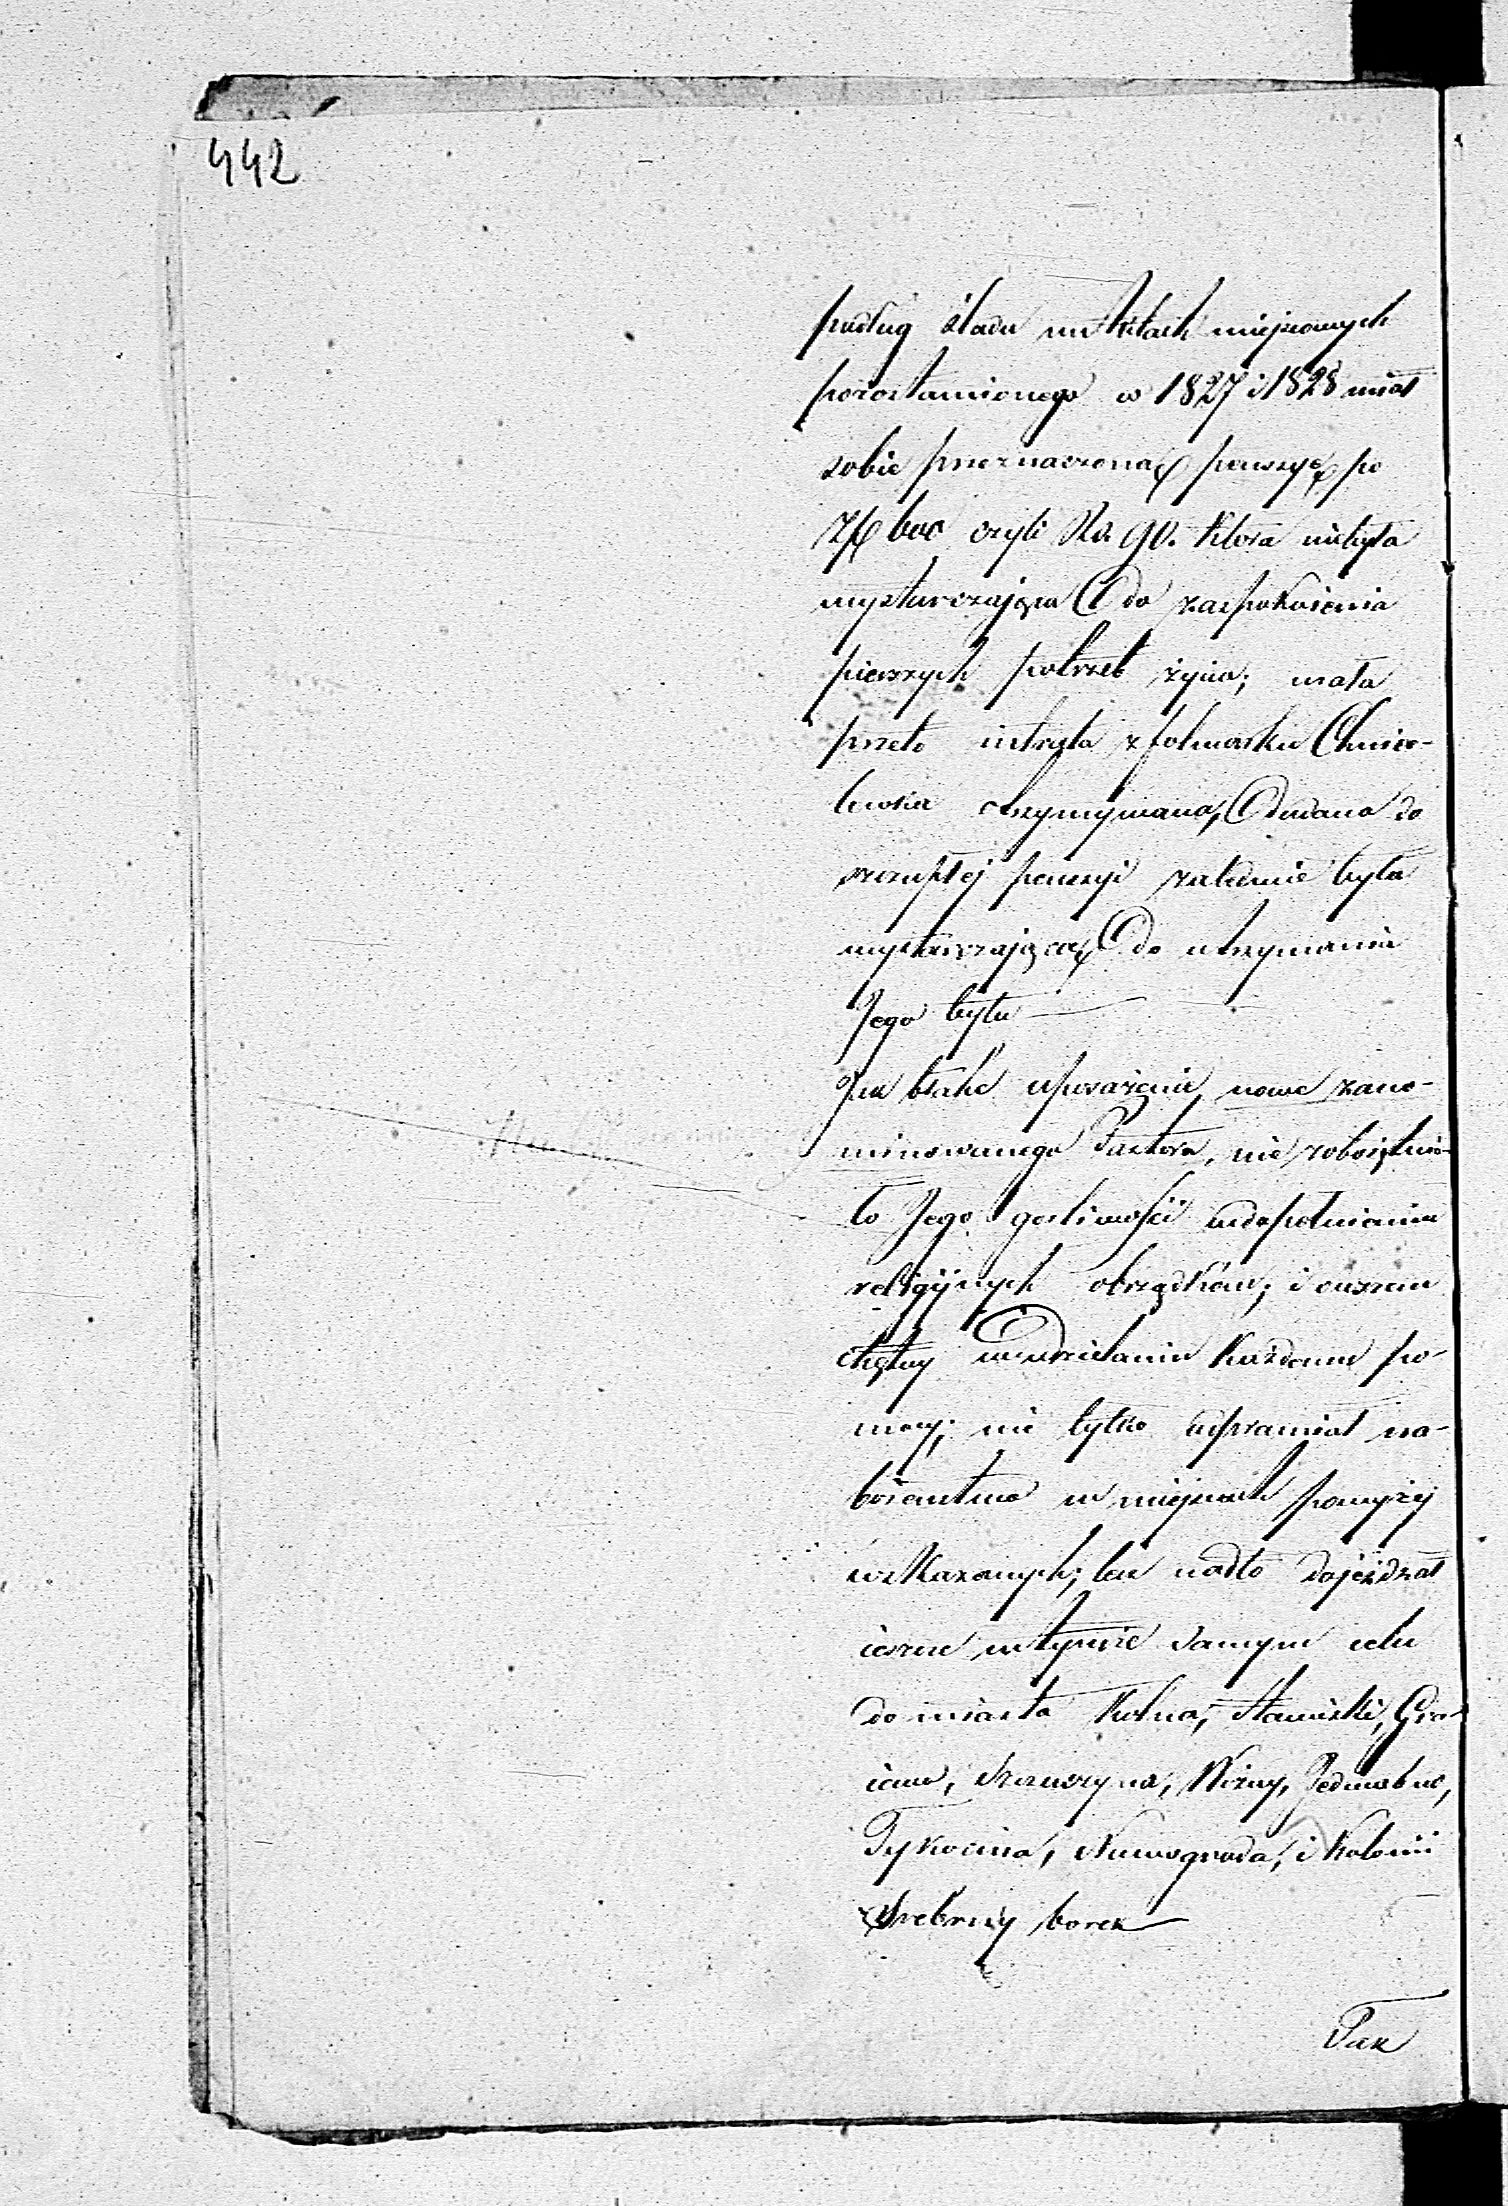 442
podług śladu w Aktach miejscowych
pozostawionego w 1827 i 1828 miał
sobie przeznaczoną pensyę po
Zł 600 czyli Rs. 90. która niebyła
wystarczająca do zaspokoienia
pierszych potrzeb życia; mała
przeto intrata z folwarku Chmie-
lewska otrzymywana, dodana do
szczupłej pensyi zaledwie była
wystarczającą do utrzymania
Jego bytu —
Jak brake uposażenie nowe zano-
minowanego Pastora, nie zoboiętnia-
ło Jego gorliwości w dopełnieniu
religijnych obrządków; i owszem
chętny w udzielaniu każdemu po-
mocy; nie tylko odprawiał na-
bożeństwo w miejscach powyżej
wskazanych; lecz nadto dojeżdzał
ieszcze w tymże samym celu
do miasta Kolna, Stawiski, Gra-
iewa, Szczuczyna, Wizny, Jedwabne,
Tykocina, Nowogroda, i Kolonii
Srebrny borek
Tak